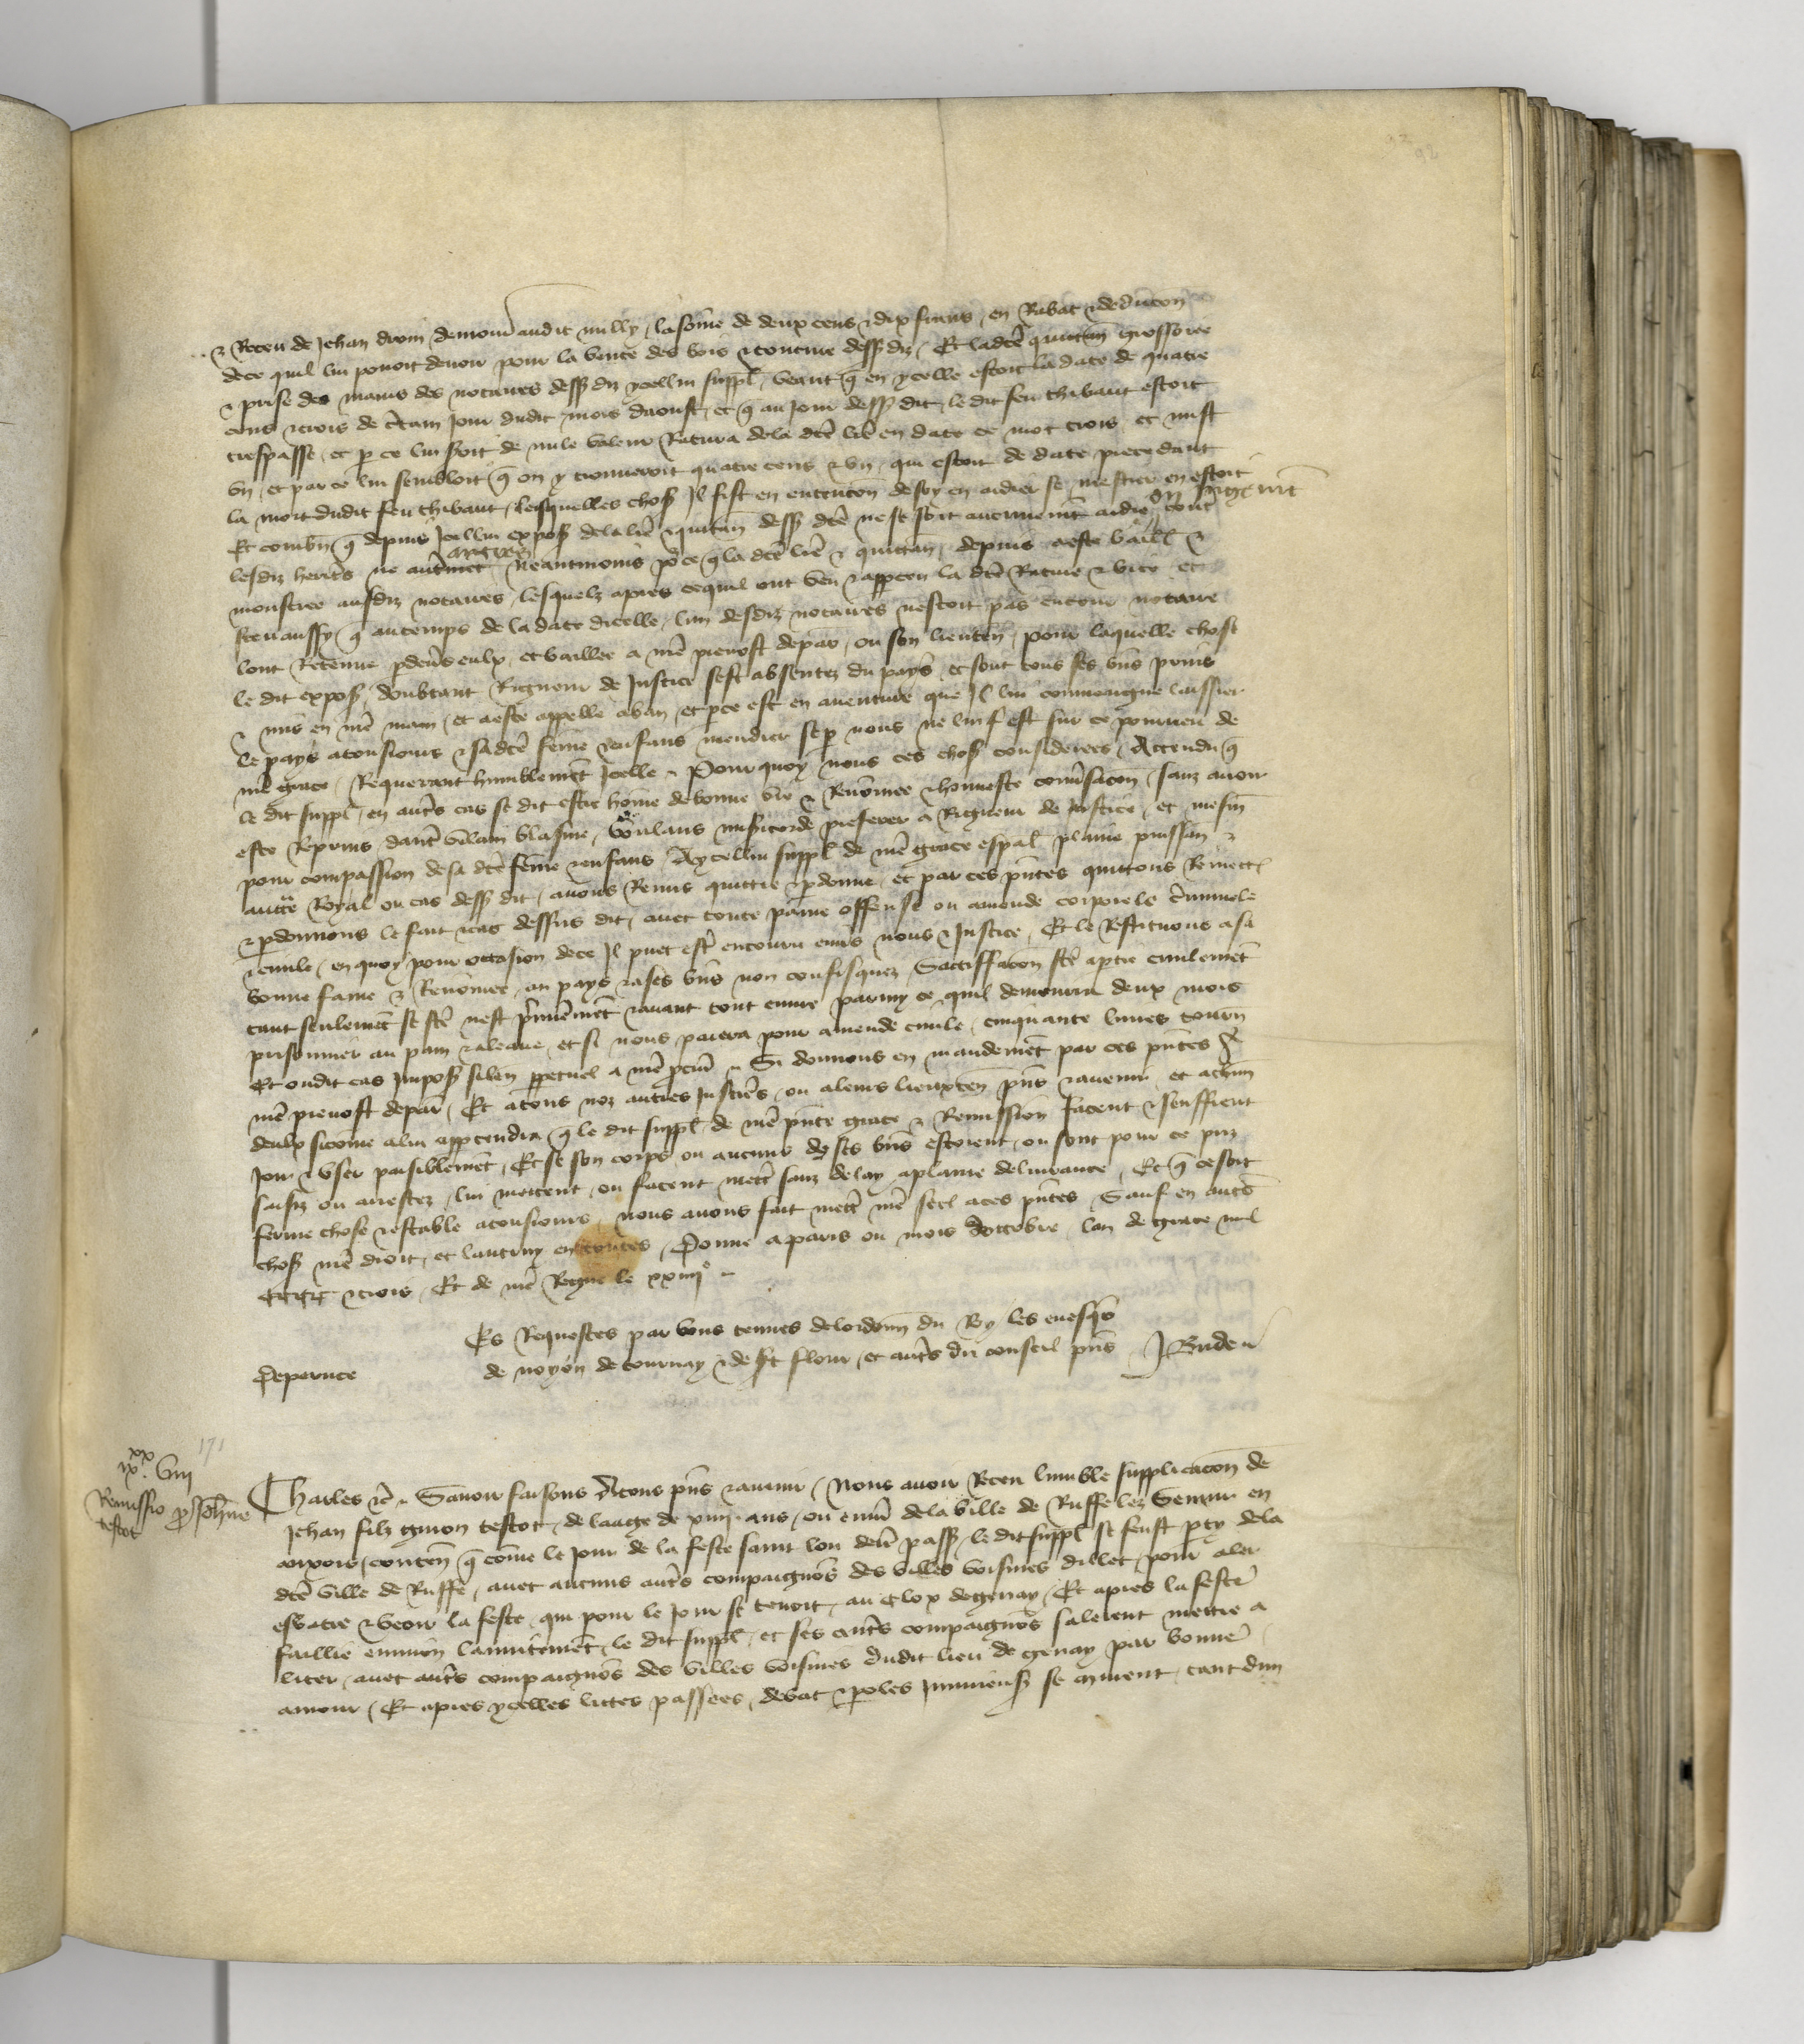 92
& Receu de Jehan droin demour audit milly la sōme de deux cens & dix frans en Rabat & deducon
de ce quil lui povoit devoir pour la vente des bois & couture dessdiz Et ladcē quittan grossoiee
& prise des mains des notaires dessdiz ycellui suppl veant q̄ en ycelle estoit la date de quatre
cens & trois de ctain jour dudit mois daoust et q̄ au jour dess dit le dit feu thibaut estoit
trespasse et p ce lui seoit de nule valeur Ratura de la dcē lrē en date ce mot trois et mist
un et par ce lui sembloit q̄ on y trouveroit quatre cens & un qui estoit de date precedant
la mort dudit feu thibaut lesquelles choss Il fist en entencon de soy en aidier se mestier en estoit
Et combn q̄ depuis Icellui exposs de la lrē & quittan dess dcē ne se soit aucunemēt aidie en jugemēt cont
lesdiz heritrs ne autrmēt Neantmoins pce q̄ la dcē lrē & quittan depuis a este baill &
monstree ausdiz notaires lesquelz apres ce quil ont veu & apperceu la dcē Rature & vice et
sceu aussy q̄ au temps de la date dicelle lun desdiz notaires nestoit pas encore notaire
lont Retenue pdevs eulx et baillee a nrē prevost de par ou son lieuten pour laquelle chose
le dit exposs doubtant Rigueur de justice sest absentez du pays et sont tous ses bns prins
& mis en nrē main et a este appelle a ban et pce est en aventure que Il lui conviengne laissier
le pays a tousjours & sadcē feme & enfans mendier se p nous ne lui est sur ce pourveu de
nrē grace Requerant humblemēt Icelle Pour quoy nous ces choss considerees Attendu q̄
le dit suppl en autrs cas se dit estre hōme de bonne vie & Renōmee & honneste convsacon sanz avoir
este Reprins dautre vilain blasme voulans misicorde preferer a Rigueur de justice et mesm
pour compassion de sa dcē feme & enfans A ycellui suppl de nrē grace espal plaine puissan &
auctē Royal ou cas dess dit avons Remis quittie & pdonne et par ces pntes quittons Remectt
& pdonnons le fait & cas dessus dit avec toute paine offense ou amende corporele criminele
& civile en quoy pour occasion de ce Il puet estre encouru envs nous & justice Et le Restituons a sa
bonne fame & Renōmee au pays & a ses bns non confisquez Sattiffacon fte a ptie civilemēt
tant seulemēt se fte nest premieremēt & avant tout euvre parmy ce quil demourra deux mois
prisonnier au pain & a leaue et si nous paiera pour amende civile cinquante livres tourn
Et oudit cas Imposs silen ppetuel a nrē pcur Si donnons en mandemēt par ces pntes A
nrē prevost de par Et a tous noz autres justiciers ou a leurs lieuxten pns & avenir et a chun
deulx sicōme a lui appartendra q̄ le dit suppl de nrē pnte grace & Remission facent & seuffrent
joir & user paisiblemēt Et se son corps ou aucuns de ses bns estoient ou sont pour ce prz
saisiz ou arrestez lui mettent ou facent mettr sanz delay a plaine delivrance Et q̄ ce soit
ferme chose & estable a tousjours nous avons fait mettr nrē seel a ces pntes Sauf en autrs
choss nrē droit et lautruy en toutes Donne a paris ou mois doctobre lan de grace mil
CCCC & trois Et de nrē Regne le xxiiii°
Es Requestes par vous tenues de lordonn du Roy les evesqs
de noyon de tournay & de st flour et autrs du conseil pns J Bude
Deparuce
171
ixxx viii
Remissio p Johne
testot
Charles &c Savoir faisons a tous pns & avenir Nous avoir Receu lumble supplicacon de
Jehan filz guion testot de laage de xviii ans ou envir de la ville de Ruffe lez Semur en
auxois conten q̄ cōme le jour de la feste saint lou derr pass le dit suppl se feust pty de la
dcē ville de Ruffe avec aucuns autrs compaignōs des villes voisines dillec pour aler
esbatre & veoir la feste qui pour le jour se tenoit au clox de genay Et apres la feste
faillie environ lanuitemēt le dit suppl et ses autrs compaignōs salerent mettre a
liter avec autrs compaignōs des villes voisines dudit lieu de genay par bonne
amour Et apres ycelles lites passees debat & poles Injurieuss se murent tant dun